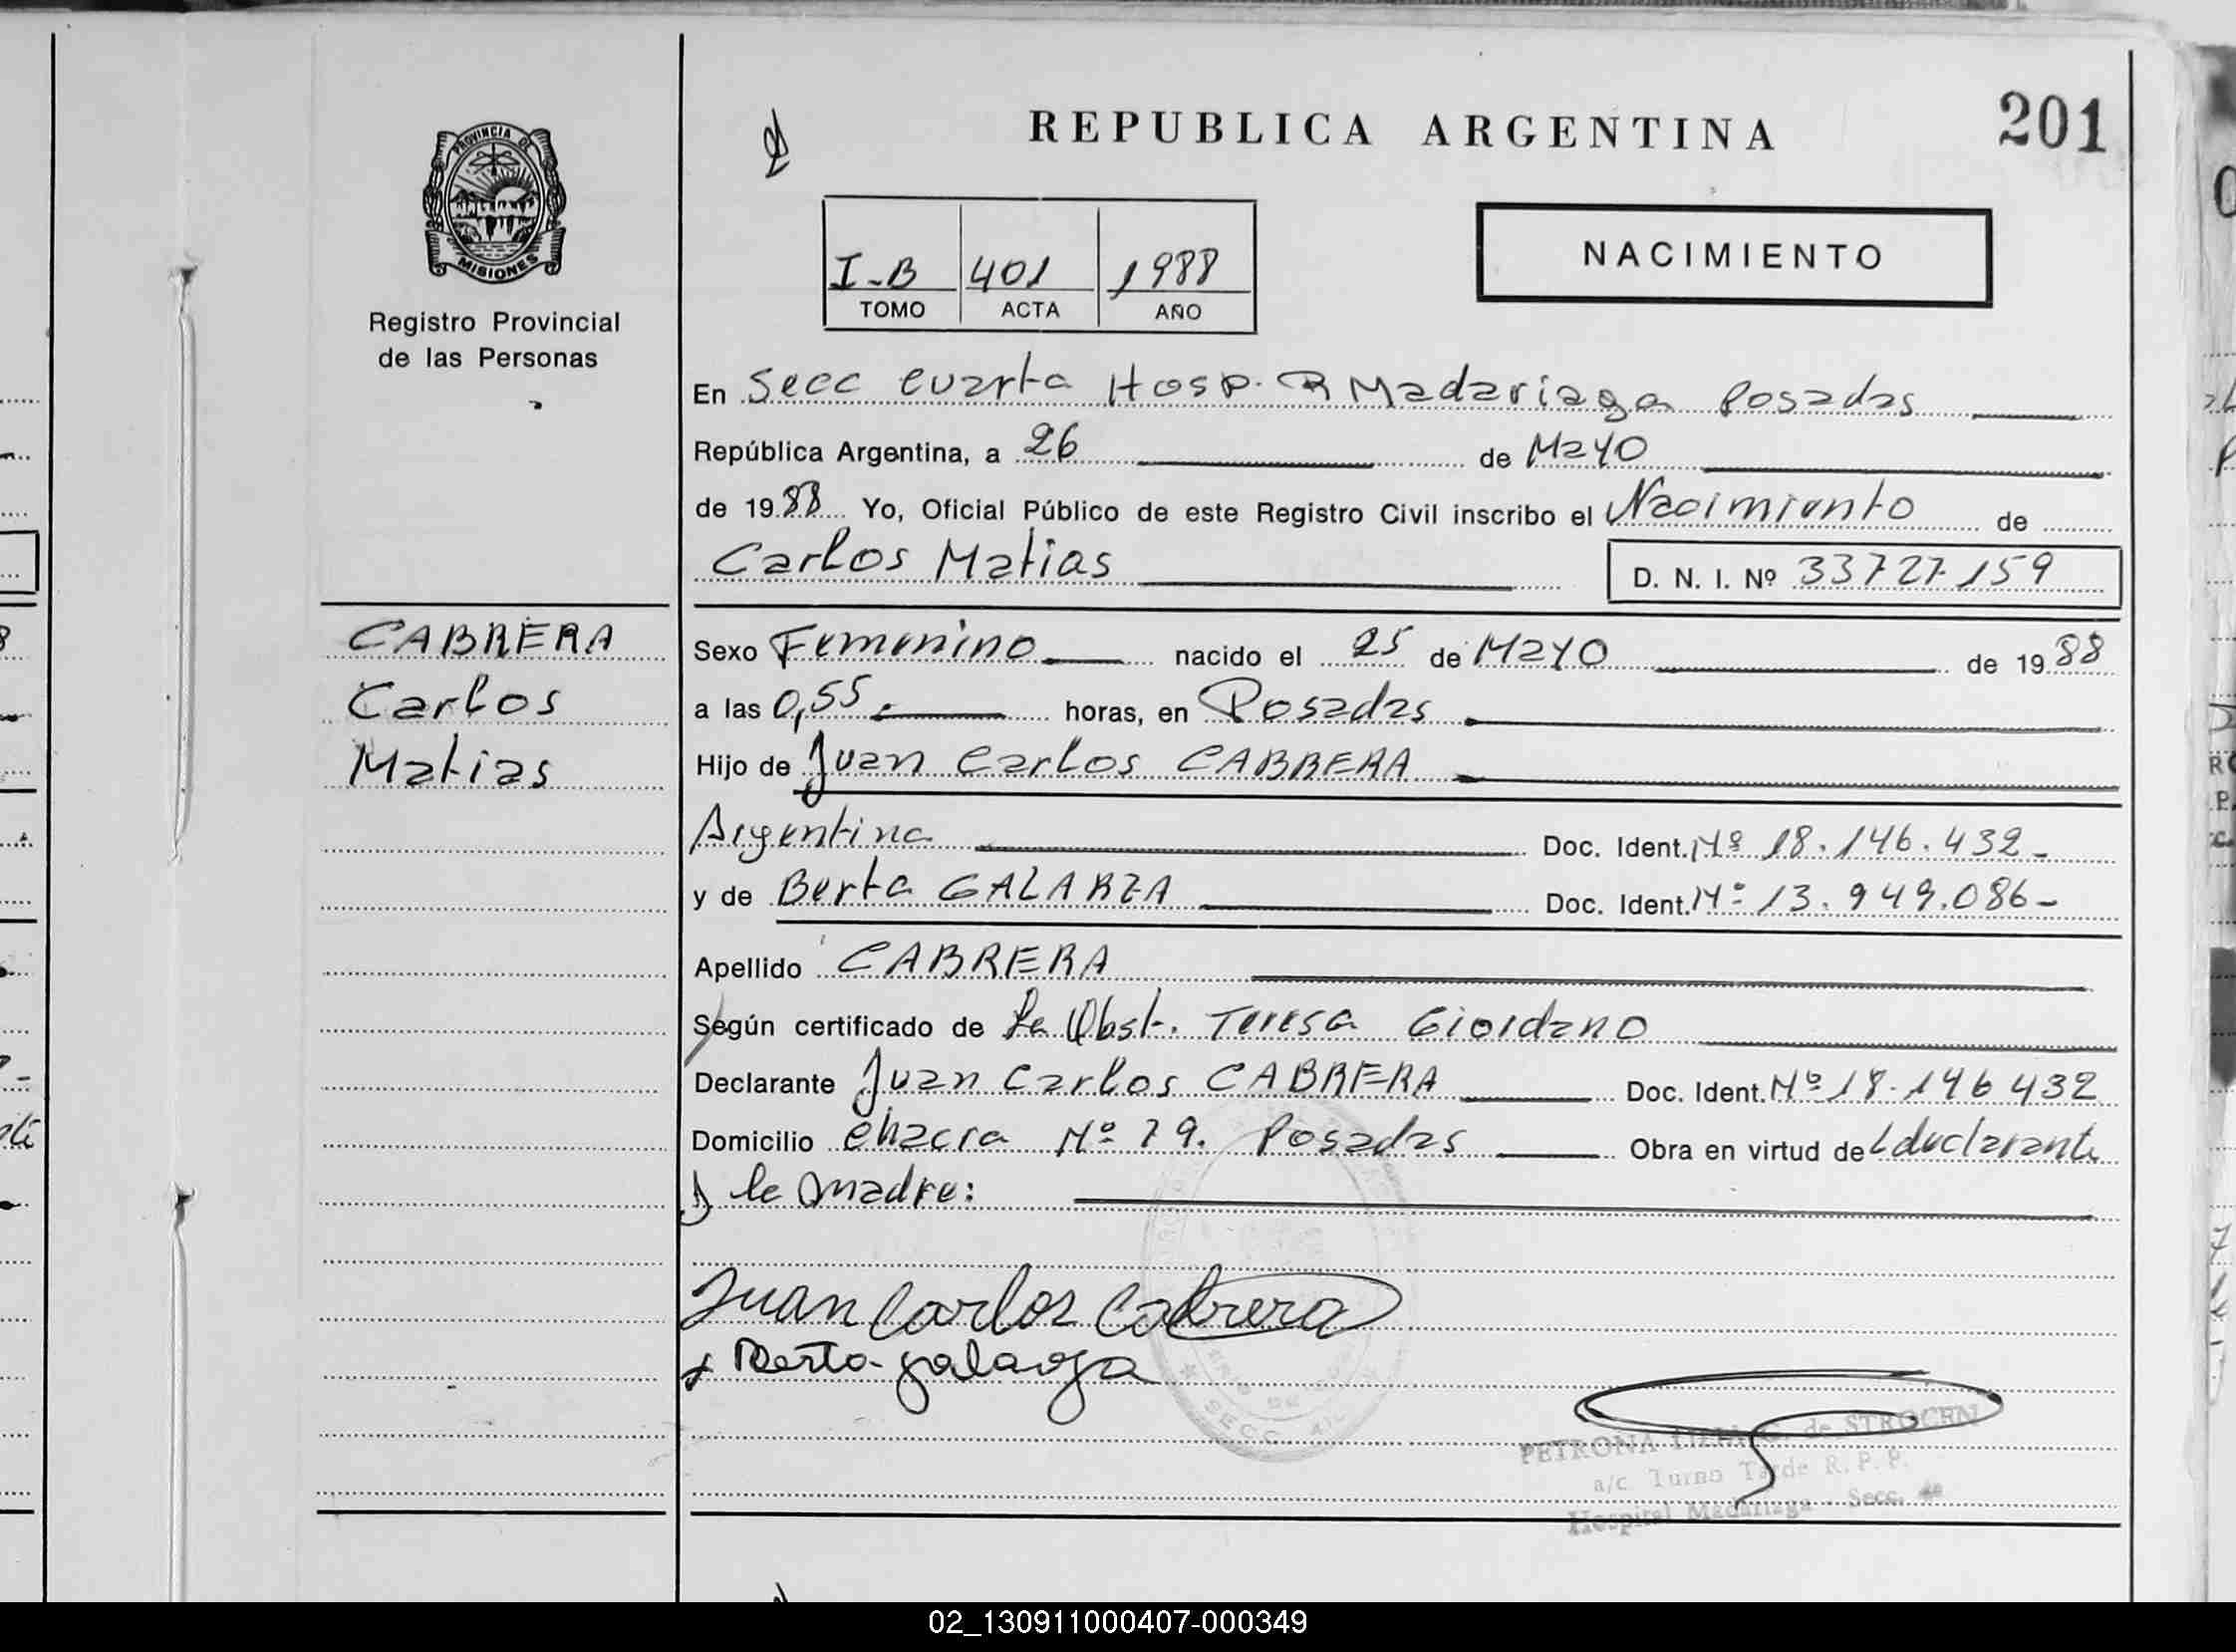 REPUBLICA ARGENTINA
201
PROVINCIA DE
MISIONES
Registro Provincial
de las Personas
I-B 401 1988
TOMO ACTA AÑO
NACIMIENTO
En Secc cuarta Hosp. R Madariaga Posadas
República Argentina, a 26 de Mayo
de 1988 Yo, Oficial Público de este Registro Civil inscribo el Nacimiento de
Carlos Matias D. N. I. Nº 33727159
CABRERA
Carlos
Matias
Sexo Femenino nacido el 25 de Mayo de 1988
a las 0,55 horas, en Posadas
Hijo de Juan Carlos CABRERA
Argentina Doc. Ident. Nº 18.146.432-
y de Berta GALARZA Doc. Ident. Nº 13.949.086-
Apellido CABRERA
Según certificado de la Obst. Teresa Giordano
Declarante Juan Carlos CABRERA Doc. Ident. Nº 18.146 432
Domicilio Chacra Nº 79. Posadas Obra en virtud de L declarante
y la madre:
Juan Carlos Cabrera
Berta galarza
SECC. 4
PETRONA de STROCEN
a/c Turno Tarde R. P. P.
Hospital Madariaga - Secc. 4a
02_130911000407-000349